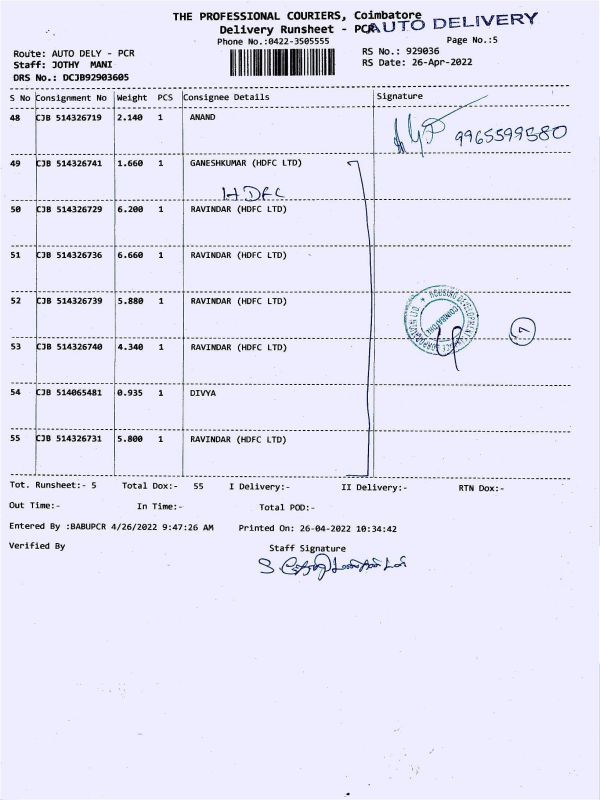 THE PROFESSIONAL COURIERS, Coimbatore
Delivery Runsheet - PCR
AUTO DELIVERY
Phone No.:0422-3505555
Page No.:5
Route: AUTO DELY - PCR
RS No.: 929036
Staff: JOTHY MANI
RS Date: 26-Apr-2022
DRS No.: DCJB92903605
S No Consignment No Weight PCS Consignee Details Signature
48 CJB 514326719 2.140 1 ANAND
9965599580
49 CJB 514326741 1.660 1 GANESHKUMAR (HDFC LTD)
HDFC
50 CJB 514326729 6.200 1 RAVINDAR (HDFC LTD)
51 CJB 514326736 6.660 1 RAVINDAR (HDFC LTD)
52 CJB 514326739 5.880 1 RAVINDAR (HDFC LTD)
HOUSING DEVELOPMENT FINANCE CORPORATION LTD
COIMBATORE
7
53 CJB 514326740 4.340 1 RAVINDAR (HDFC LTD)
54 CJB 514065481 0.935 1 DIVYA
55 CJB 514326731 5.800 1 RAVINDAR (HDFC LTD)
Tot. Runsheet:- 5 Total Dox:- 55 I Delivery:- II Delivery:- RTN Dox:-
Out Time:- In Time:- Total POD:-
Entered By :BABUPCR 4/26/2022 9:47:26 AM Printed On: 26-04-2022 10:34:42
Verified By Staff Signature